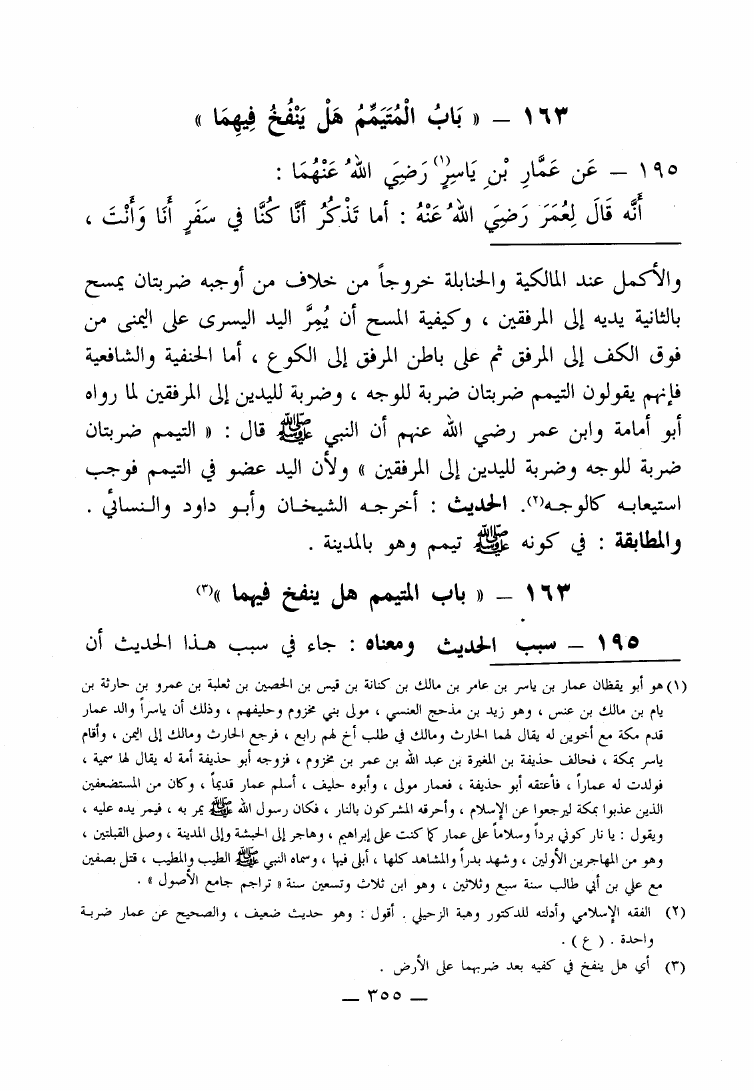 ١٦٣ – « بَابُ الْمُتَيَمِّمُ هَلْ يَنْفُخُ فِيهِمَا »
١٩٥ – عَن عَمَّارِ بْنِ يَاسِرٍ(١) رَضِيَ اللهُ عَنْهُمَا :
أَنَّه قَالَ لِعُمَرَ رَضِيَ اللهُ عَنْهُ : أما تَذْكُرُ أنَّا كُنَّا في سَفَرٍ أَنَا وَأَنْتَ ،
والأكمل عند المالكية والحنابلة خروجاً من خلاف من أوجبه ضربتان يمسح
بالثانية يديه إلى المرفقين ، وكيفية المسح أن يُمِرَّ اليد اليسرى على اليمنى من
فوق الكف إلى المرفق ثم على باطن المرفق إلى الكوع ، أما الحنفية والشافعية
فإنهم يقولون التيمم ضربتان ضربة للوجه ، وضربة لليدين إلى المرفقين لما رواه
أبو أمامة وابن عمر رضي الله عنهم أن النبي ﷺ قال : « التيمم ضربتان
ضربة للوجه وضربة لليدين إلى المرفقين » ولأن اليد عضو في التيمم فوجب
استيعابه كالوجه(٢). الحديث : أخرجه الشيخان وأبو داود والنسائي .
والمطابقة : في كونه ﷺ تيمم وهو بالمدينة .
١٦٣ – « باب المتيمم هل ينفخ فيهما »(٣)
١٩٥ – سبب الحديث ومعناه : جاء في سبب هذا الحديث أن
(١) هو أبو يقظان عمار بن ياسر بن عامر بن مالك بن كنانة بن قيس بن الحصين بن ثعلبة بن عمرو بن حارثة بن
يام بن مالك بن عنس ، وهو زيد بن مذحج العنسي ، مولى بني مخزوم وحليفهم ، وذلك أن ياسراً والد عمار
قدم مكة مع أخوين له يقال لهما الحارث ومالك في طلب أخ لهم رابع ، فرجع الحارث ومالك إلى اليمن ، وأقام
ياسر بمكة ، فحالف حذيفة بن المغيرة بن عبد الله بن عمر بن مخزوم ، فزوجه أبو حذيفة أمة له يقال لها سمية ،
فولدت له عماراً ، فأعتقه أبو حذيفة ، فعمار مولى ، وأبوه حليف ، أسلم عمار قديماً ، وكان من المستضعفين
الذين عذبوا بمكة ليرجعوا عن الإسلام ، وأحرقه المشركون بالنار ، فكان رسول الله ﷺ يمر به ، فيمر يده عليه ،
ويقول : يا نار كوني برداً وسلاماً على عمار كما كنت على إبراهيم ، وهاجر إلى الحبشة وإلى المدينة ، وصلى القبلتين ،
وهو من المهاجرين الأولين ، وشهد بدراً والمشاهد كلها ، أبلى فيها ، وسماه النبي ﷺ الطيب والمطيب ، قتل بصفين
مع علي بن أبي طالب سنة سبع وثلاثين ، وهو ابن ثلاث وتسعين سنة « تراجم جامع الأصول » .
(٢) الفقه الإسلامي وأدلته للدكتور وهبة الزحيلي . أقول : وهو حديث ضعيف ، والصحيح عن عمار ضربة
واحدة . ( ع ) .
(٣) أي هل ينفخ في كفيه بعد ضربهما على الأرض .
– ٣٥٥ –